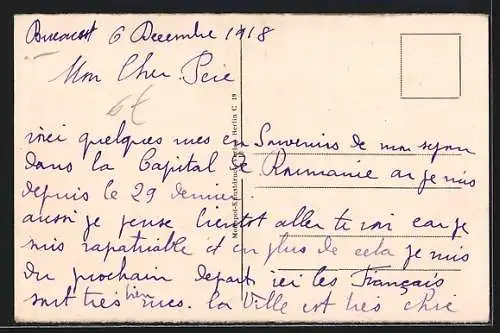 Bucarest 6 Decembre 1918
Mon Cher Pere
6t
voici quelques vues en Souvenirs de mon sejour
dans la Capital de Roumanie ou je suis
depuis le 29 dernier.
aussi je pense bientot aller te voir car je
suis rapatriable et en plus de cela je suis
du prochain depart ici les Français
sont très bien vues. la Ville est très chic
Berlin C 19